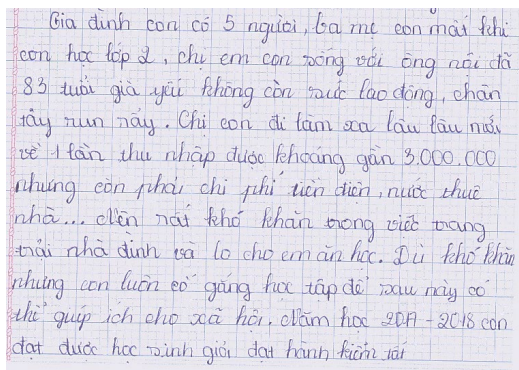 Gia đình con có 5 người, ba mẹ con mất khi
con học lớp 2, chị em con sống với ông nội đã
83 tuổi già yếu không còn sức lao động, chân
tây run nảy. Chi con đi làm xa lâu lâu mới
về 1 lần thu nhập được khoảng gần 3.000.000
nhưng còn phải chi phí tiền điện, nước thuê
nhà... Nên rất khó khăn trong việc trang
trải nhà đình và lo cho em ăn học. Dù khó khăn
nhưng con luôn cố gắng học tập để sau này có
thể giúp ích cho xã hội. Năm học 2017-2018 con
đạt được học sinh giỏi đạt hành kiểm tốt